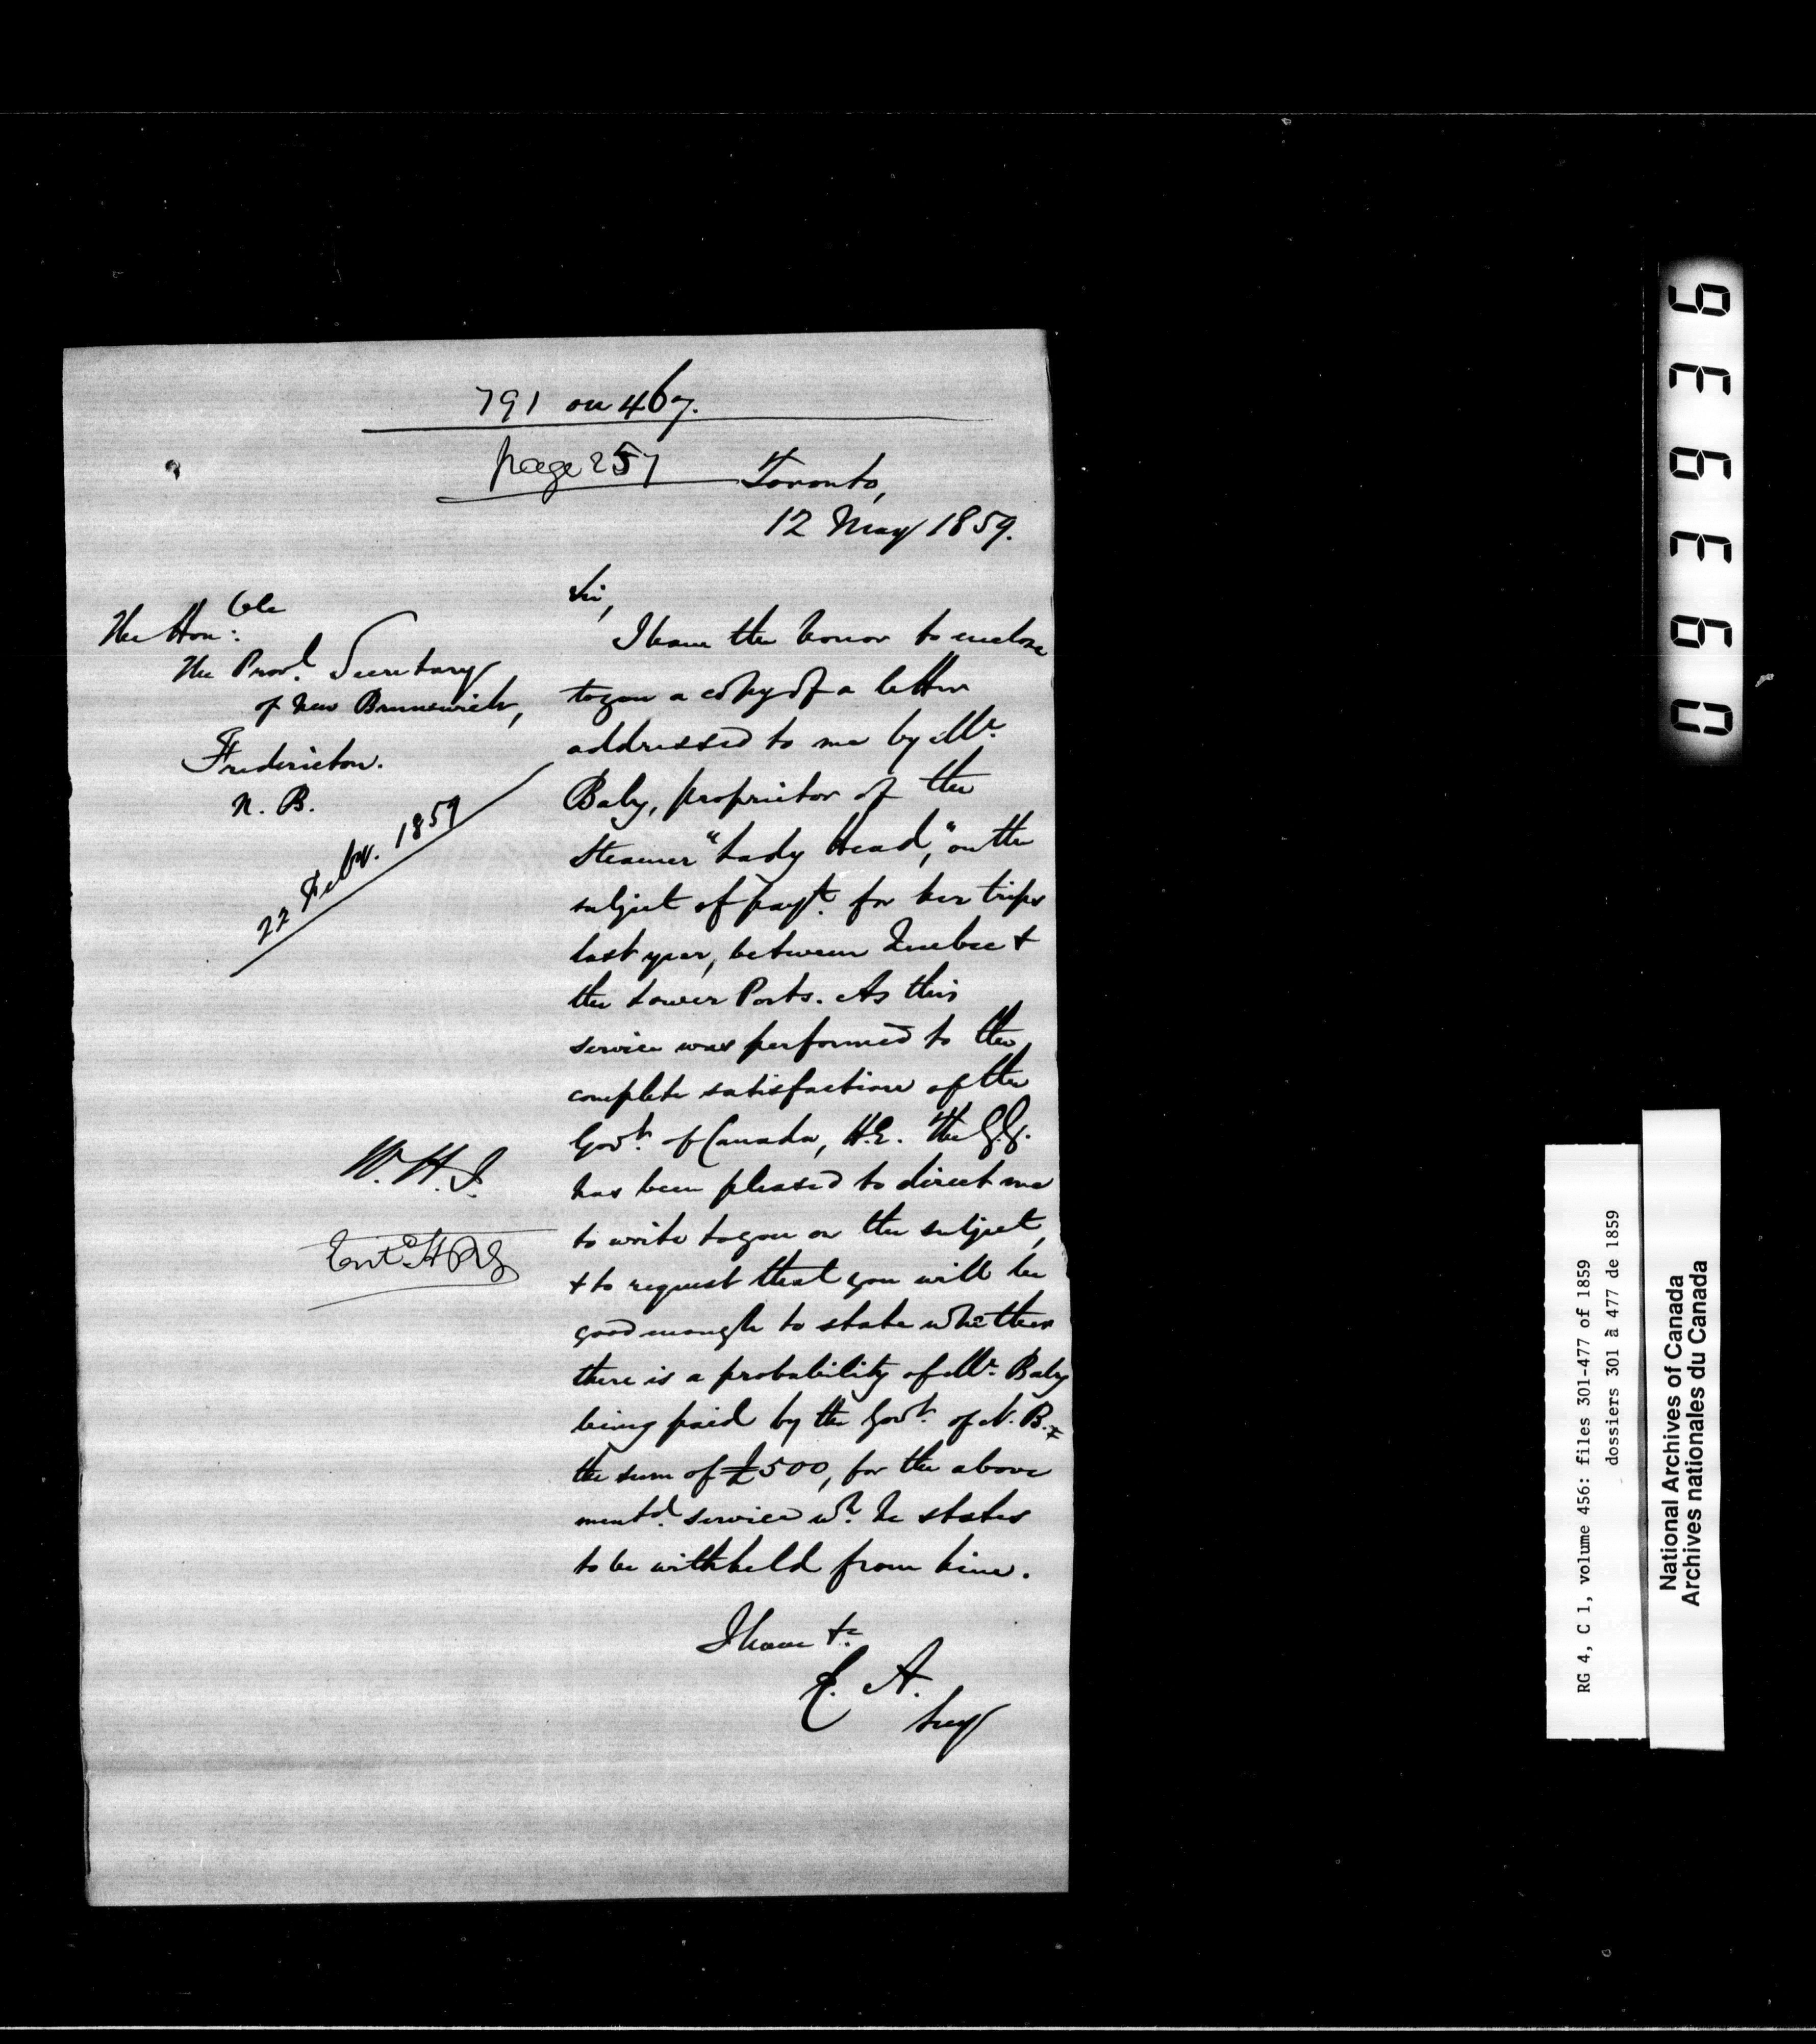 791 on 467.
page 257
Toronto,
12 May 1859.
The Hon:ble
The Provl. Secretary
of New Brunswick,
Fredericton.
N. B.
22 Feby. 1859
Sir,
I have the honor to enclose
to you a copy of a letter
addressed to me by Mr.
Baby, proprietor of the
Steamer "Lady Head," on the
subject of payt. for her trips
last year, between Quebec &
the Lower Ports. As this
service was performed to the
complete satisfaction of the
Govt. of Canada, H.E. the G.G.
has been pleased to direct me
to write to you on the subject,
& to request that you will be
good enough to state whether
there is a probability of Mr. Baby
being paid by the Govt. of N. B.
the sum of £500, for the above
mentd. service wh. he states
to be withheld from him.
I have &c
E. A.
Secy
W. H. J.
Entd.
RG 4, C 1, volume 456: files 301-477 of 1859
dossiers 301 à 477 de 1859
National Archives of Canada
Archives nationales du Canada
093939